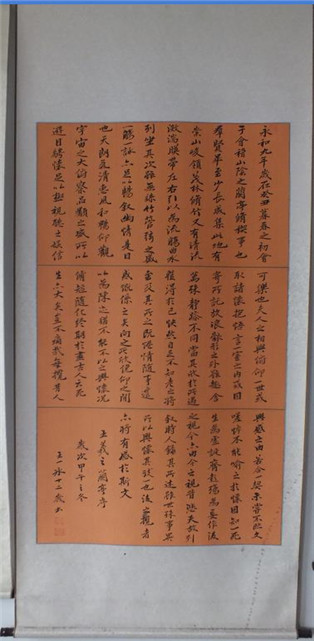 永和九年歲在癸丑暮春之初會
于會稽山陰之蘭亭脩禊事也
群賢畢至少長咸集此地有
崇山峻領茂林脩竹又有清流
激湍暎帶左右引以為流觴曲水
列坐其次雖無絲竹管弦之盛
一觴一詠亦足以暢敘幽情是日
也天朗氣清惠風和暢仰觀
宇宙之大俯察品類之盛所以
遊目騁懷足以極視聽之娛信
可樂也夫人之相與俯仰一世或
取諸懷抱悟言一室之內或因
寄所託放浪形骸之外雖趣舍
萬殊靜躁不同當其欣於所遇
暫得於己快然自足不知老之將
至及其所之既惓情隨事遷
感慨係之矣向之所欣俛仰之間
以為陳迹猶不能不以之興懷況
脩短隨化終期於盡古人云死
生亦大矣豈不痛哉每攬昔人
興感之由若合一契未嘗不臨文
嗟悼不能喻之於懷固知一死
生為虛誕齊彭殤為妄作後
之視今亦由今之視昔悲夫故列
敘時人錄其所述雖世殊事異
所以興懷其致一也後之攬者
亦將有感於斯文
王羲之蘭亭序
歲次甲午之冬
王一 十二歲書